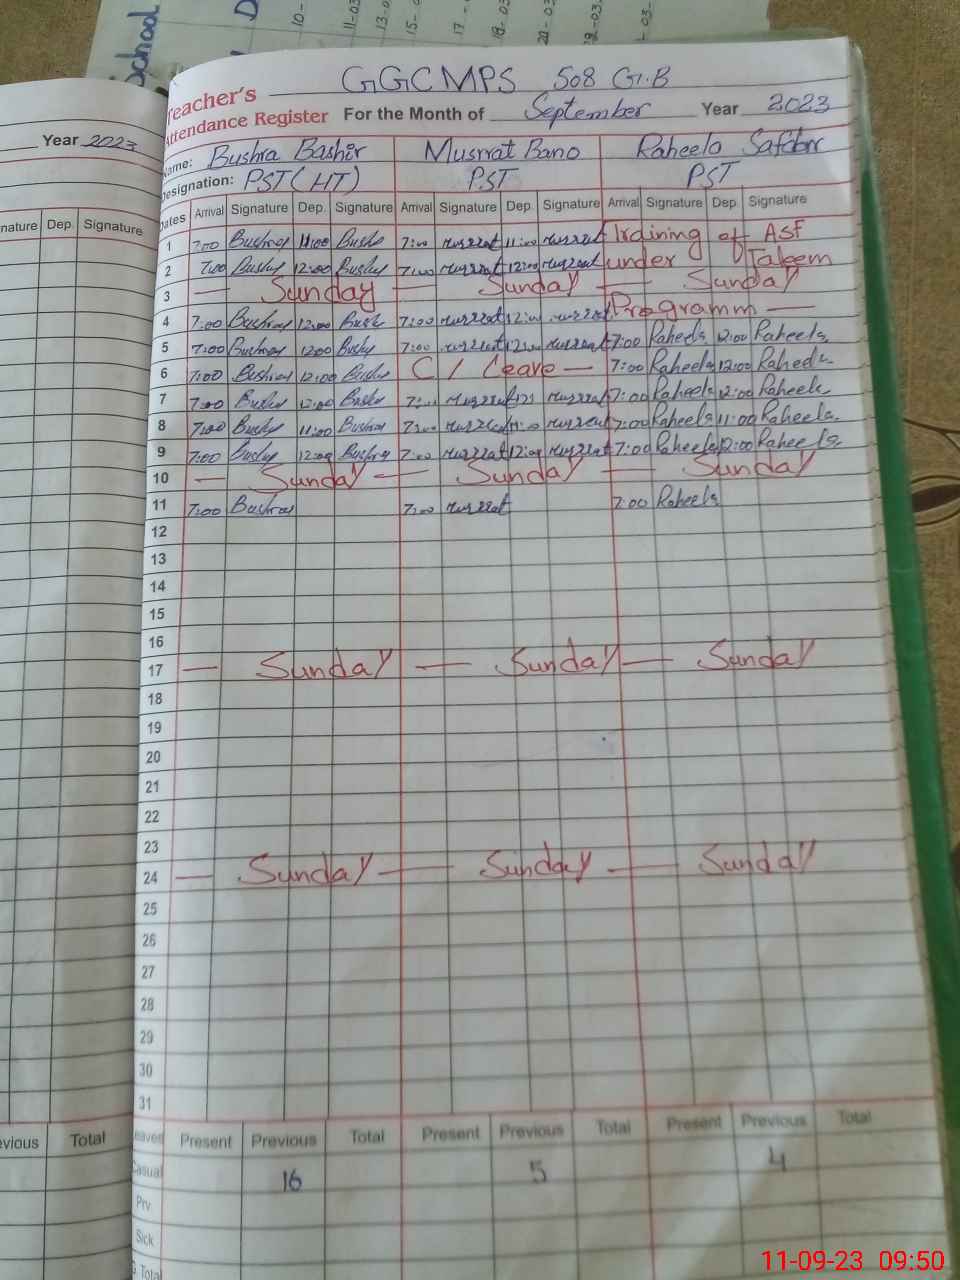 School
D
10-
11-03
13-0
15-
17-
18-03
20-03
22-03
-03-
Year 2023
nature Dep. Signature
GGCMPS 508 G.B
Teacher's
Attendance Register For the Month of September Year 2023
Name: Bushra Bashir Musrrat Bano Raheela Safdar
Designation: PST (HT) PST PST
Dates Arrival Signature Dep. Signature Arrival Signature Dep. Signature Arrival Signature Dep. Signature
1 7:00 Bushra 11:00 Bushra 7:00 Musrrat 11:00 Musrrat Training of ASF
2 7:00 Bushra 12:00 Bushra 7:00 Musrrat 12:00 Musrrat under Taleem
3 — Sunday — Sunday — Sunday
4 7:00 Bushra 12:00 Bushra 7:00 Musrrat 12:00 Musrrat Programm —
5 7:00 Bushra 12:00 Bushra 7:00 Musrrat 12:00 Musrrat 7:00 Raheela 12:00 Raheela
6 7:00 Bushra 12:00 Bushra C/Leave — 7:00 Raheela 12:00 Raheela
7 7:00 Bushra 12:00 Bushra 7:00 Musrrat Musrrat 7:00 Raheela 12:00 Raheela
8 7:00 Bushra 11:00 Bushra 7:00 Musrrat 11:00 Musrrat 7:00 Raheela 11:00 Raheela
9 7:00 Bushra 12:00 Bushra 7:00 Musrrat 12:00 Musrrat 7:00 Raheela 12:00 Raheela
10 — Sunday — Sunday — Sunday
11 7:00 Bushra 7:00 Musrrat 7:00 Raheela
12
13
14
15
16
17 — Sunday — Sunday — Sunday
18
19
20
21
22
23
24 — Sunday — Sunday — Sunday
25
26
27
28
29
30
31
evious Total
Leaves Present Previous Total Present Previous Total Present Previous Total
Casual 16 5 4
Prv
Sick
G. Total
11-09-23 09:50